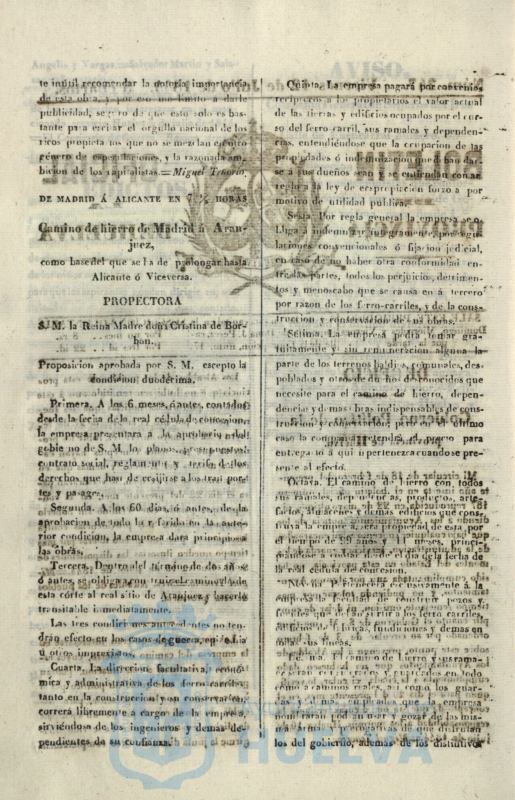 te inútil recomendar la notoria importancia
de esta obra, y por eso me limito á darle
publicidad, seguro de que esto solo es bas-
tante para excitar el orgullo nacional de los
ricos propietarios que no se mezclan en otro
género de especulaciones, y la razonada am-
bicion de los capitalistas.=Miguel Tenorio.
DE MADRID Á ALICANTE EN 7 ½ HORAS
Camino de hierro de Madrid á Aran-
juez,
como base del que se ha de prolongar hasta
Alicante ó Viceversa.
PROPECTORA
S. M. la Reina Madre doña Cristina de Bor-
bon.
Proposicion aprobada por S. M. escepto la
condicion duodécima.
Primera. A los 6 meses, ó antes, contados
desde la fecha de la real cédula de concesion,
la empresa presentará á la aprobacion del
gobierno de S. M. los planos, presupuestos,
contrato social, reglamento y tarifa de los
derechos que han de exijirse á los trasportes
y pasages.
Segunda. A los 60 dias, ó antes, de la
aprobacion de todo lo referido en la ante-
rior condicion, la empresa dará principio á
las obras.
Tercera. Dentro del término de dos años
ó antes, se obliga a concluir el camino desde
esta córte al real sitio de Aranjuez y hacerlo
transitable inmediatamente.
Las tres condiciones antecedentes no ten-
drán efecto en los casos de guerra, epidemia
ú otros imprevistos.
Cuarta. La direccion facultativa, económica
y administrativa de los ferro-carriles
tanto en la construccion y su conservacion,
correrá libremente á cargo de la empresa,
sirviéndose de los ingenieros y demas de-
pendientes de su confianza.
Quinta. La empresa pagará por convenios
recíprocos á los propietarios el valor actual
de las tierras y edificios ocupados por el cur-
so del ferro-carril, sus ramales y dependen-
cias, entendiéndose que la ocupacion de las
propiedades ó indemnizacion que deban dar-
se á sus dueños sean y se entiendan con ar-
reglo á la ley de expropiacion forzosa por
motivo de utilidad pública.
Sesta. Por regla general la empresa se o-
bliga á indemnizar íntegramente, por regu-
laciones convencionales ó fijacion judicial,
en caso de no haber otra conformidad en-
tre las partes, todos los perjuicios, detrimen-
tos y menoscabo que se causa en á tercero
por razon de los ferro-carriles, y de la cons-
truccion y conservacion de sus obras.
Sétima. La empresa podrá tomar gra-
tuitamente y sin remuneracion alguna la
parte de los terrenos baldíos, comunales, des-
poblados y otros de dueños desconocidos que
necesite para el camino de hierro, depen-
dencias y demas obras indispensables de cons-
truccion y conservacion; pero en el último
caso la compañia retendrá el precio para
entregarlo á quien pertenezca cuando se pre-
sente al efecto.
Octava. El camino de hierro con todos
sus ramales, dependencias, productos, arte-
factos, almacenes y demas edificios que cons-
truya la empresa, será propiedad de esta por
el tiempo de 99 años y 11 meses, princi-
piándose á contar desde el dia de la fecha de
la real cédula de concesion.
Novena. Pertenecerá esclusivamente á la
empresa la facultad de construir pozos,
edificios, fábricas, fundiciones y demas en
todas sus líneas.
Décima. El camino de hierro y sus rama-
les serán considerados y reputados en todo
como caminos reales, así como los guar-
das y demas empleados que la empresa
nombrará podrán usar y gozar de las mis-
mas armas y prerogativas que disfrutan
los del gobierno, ademas de los distintivos
HUELVA